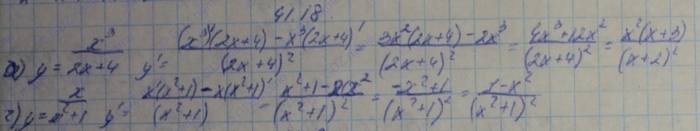 41.18.
а) y = x³/(2x+4) y' = ((x³)'(2x+4) - x³(2x+4)')/(2x+4)² = (3x²(2x+4) - 2x³)/(2x+4)² = (4x³+12x²)/(2x+4)² = x²(x+3)/(x+2)²
г) y = x/(x²+1) y' = (x'(x²+1) - x(x²+1)')/(x²+1)² = (x²+1-2x²)/(x²+1)² = (-x²+1)/(x²+1)² = (1-x²)/(x²+1)²